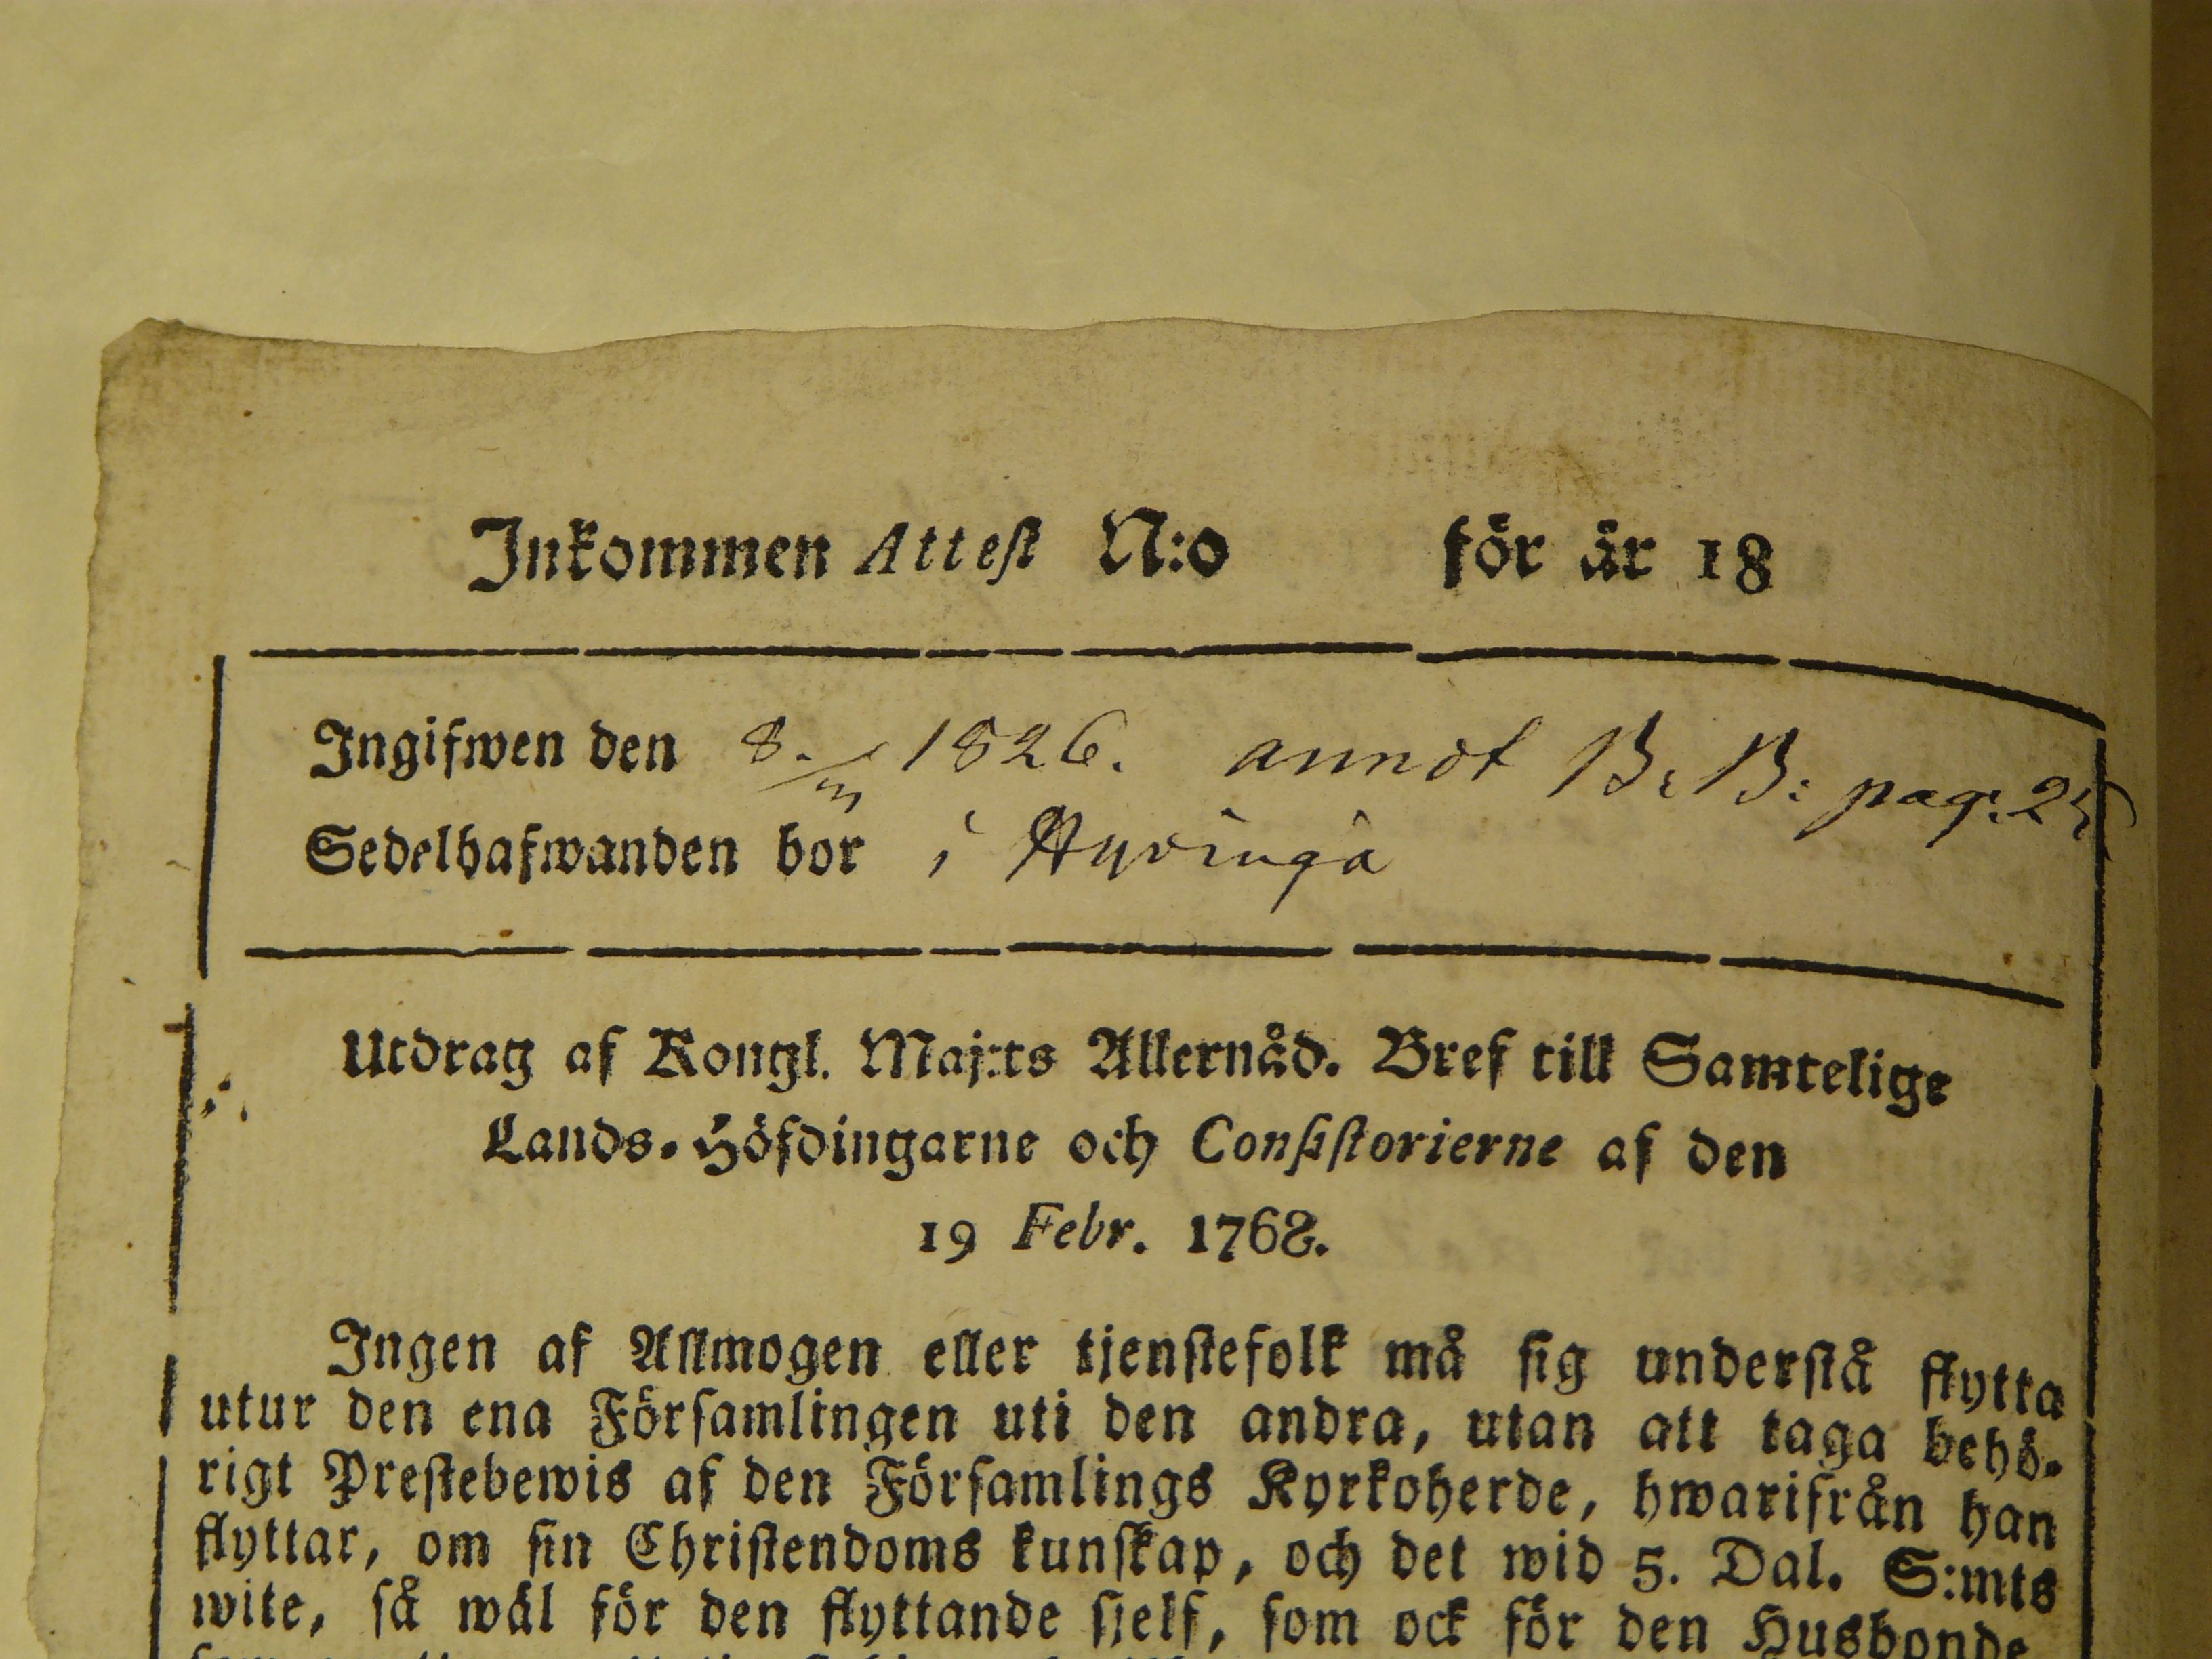 Inkommen Attest N:o för år 18
Ingifwen den 8./m 1826. annot B: B: pag: 25
Sedelhafwanden bor i Hyringa
Utdrag af Kongl. Maj:ts Allernåd. Bref till Samtelige
Lands-Höfdingarne och Consistorierne af den
19 Febr. 1768.
Ingen af Allmogen eller tjenstefolk må sig understå flytta
utur den ena Församlingen uti den andra, utan att taga behö-
rigt Prestebewis af den Församlings Kyrkoherde, hwarifrån han
flyttar, om sin Christendoms kunskap, och det wid 5. Dal. S:mts
wite, så wäl för den flyttande sjelf, som ock för den Husbonde